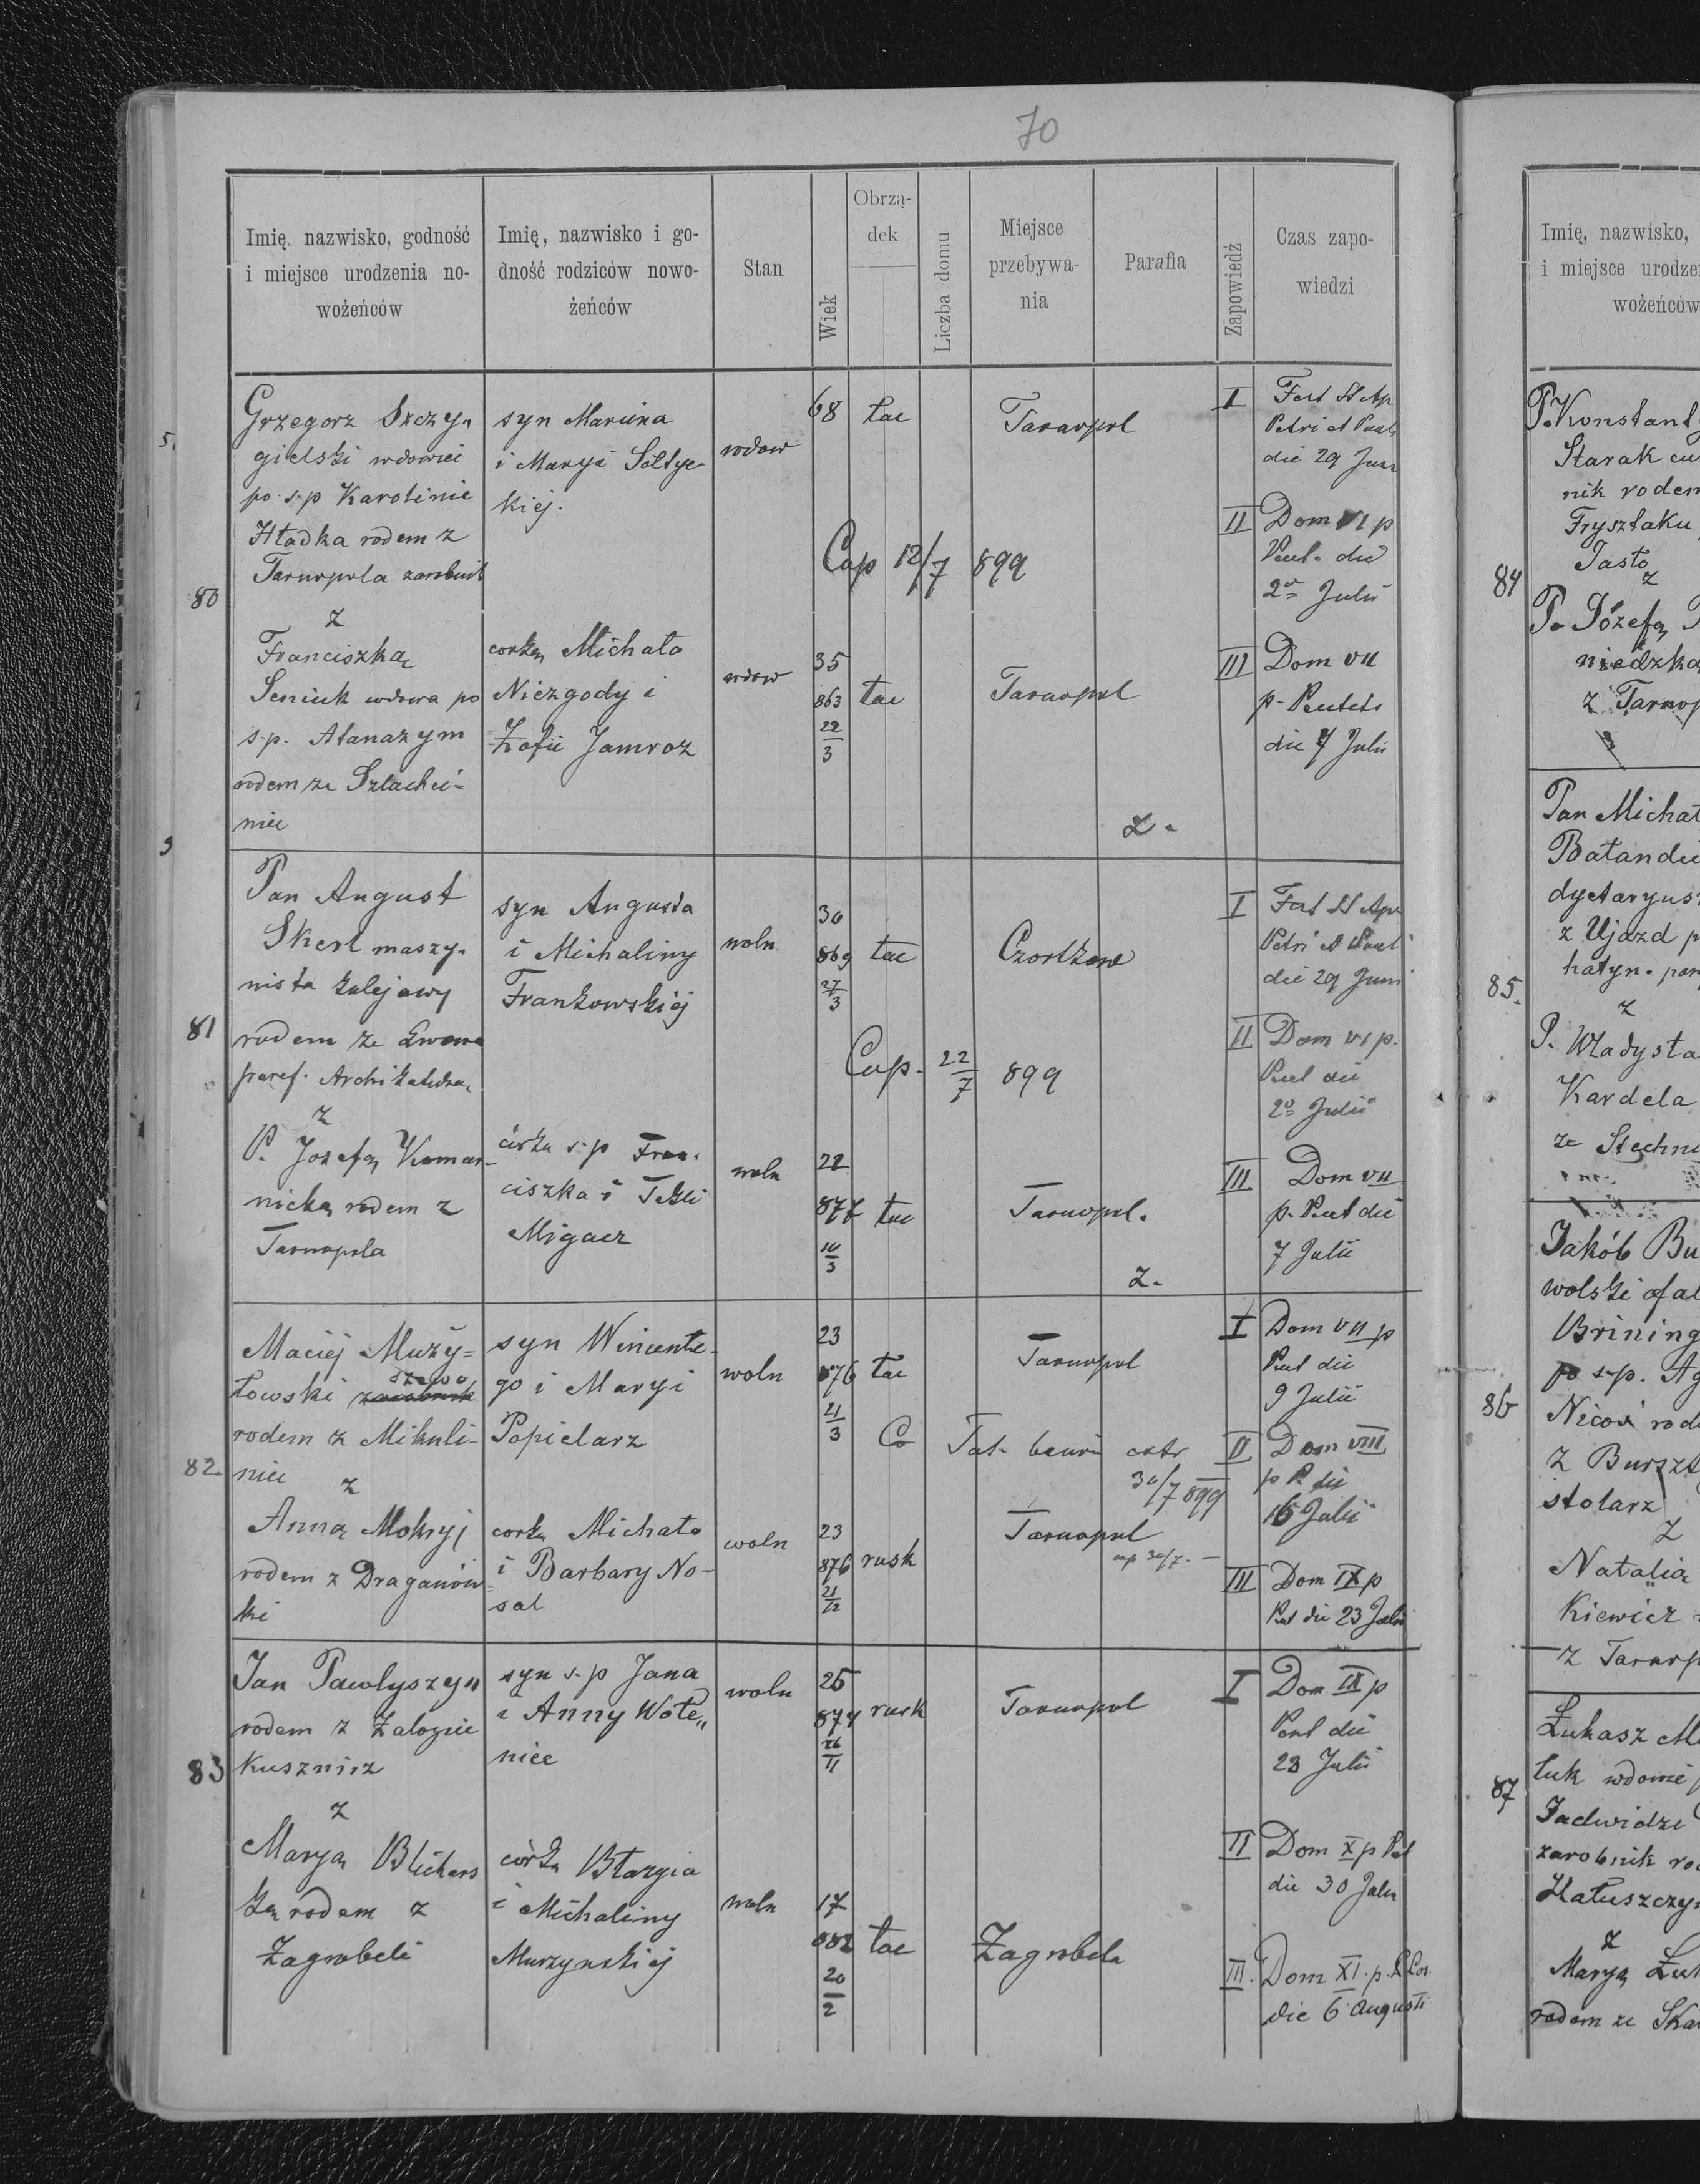 70
Imię, nazwisko, godność
i miejsce urodzenia no-
wożeńców
Imię, nazwisko i go-
dność rodziców nowo-
żeńców
Stan
Wiek
Obrzą-
dek
Liczba domu
Miejsce
przebywa-
nia
Parafia
Zapowiedź
Czas zapo-
wiedzi
80
Grzegorz Szczy-
gielski wdowiec
po s.p Karolinie
Hładka rodem z
Tarnopola zarobnik
z
Franciszką
Seniuk wdowa po
s.p. Atanazym
rodem ze Szlachci=
niec
syn Marcina
i Maryi Sołtyc-
kiej.
córką Michała
Niezgody i
Zofii Jamroz
wdow
wdow
68
łac
Tarnopol
Cop 12/7 899
35
863
22
3
łac
Tarnopol
Z.
I
Fest SS Ap
Petri et Pauli
die 29 Juni
II
Dom VI p
Pent. die
2a Julii
III
Dom VII
p. Pentets
die 7 Julii
81
Pan August
Skerl maszy-
nista kolejowy
rodem ze Lwowa
paraf. Archikatedra,
z
P. Jozefą Komar-
nicką rodem z
Tarnopola
syn Augusta
i Michaliny
Frankowskiej
córka s.p Fran.
ciszka i Tekli
Migacz
woln
woln
30
869
27
3
łac
Czortkow
Cop. 22/7 899
22
877
10
3
łac
Tarnopol.
Z.
I
Fest SS Apo
Petri et Pauli
die 29 Juni
II
Dom VI p.
Pent die
2a Julii
III
Dom VII
p. Pent die
7 Julii
82.
Maciej Muży=
szewc
łowski zarobnik
rodem z Mikuli-
niec
z
Anną Mokryj
rodem z Draganów=
ki
syn Wincente-
go i Maryi
Popielarz
córka Michała
i Barbary No-
sal
woln
woln
23
876
21
3
łac
Tarnopol
30/7 899
23
876
21
12
rusk
Tarnopol
cop 30/7. —
I
Dom VII p
Pent die
9 Julii
II
Dom VIII
p P. die
16 Julii
III
Dom IX p
Pent die 23 Julii
83
Jan Pawlyszyn
rodem z Zalozic
Kusznirz
z
Maryą Blichars
ką rodem z
Zagrobeli
syn s.p Jana
i Anny Wołe„
nice
córka Błażia
i Michaliny
Murzynskiej
woln
woln
25
874
26
11
rusk
Tarnopol
17
882
20
2
łac
Zagrobela
I
Dom IX p
Pent die
23 Julii
II
Dom X p Pet
die 30 Julii
III.
Dom XI. p.
die 6 Augusti
Imię, nazwisko,
i miejsce urodze
wożeńców
84
P. Konstanty
Starak cu
nik rodem
Frysztaku
Jasło
z
P. Józefą
niedzką
z Tarnop
85.
Pan Michał
Batandie
dyetaryusz
z Ujazd p
hatyn. par
z
P. Władysła
Kardela
ze Stechni
86
Jakób Bu
wolski ofal
Brining
po s.p. Ag
Nicoś rod
z Burszt
stolarz
z
Natalią
Kiewicz
z Tarnop
87
Łukasz Me
luk wdowie
Jadwidze
zarobnik ro
Hałuszczyn
z
Maryą Łuk
rodem ze Ska